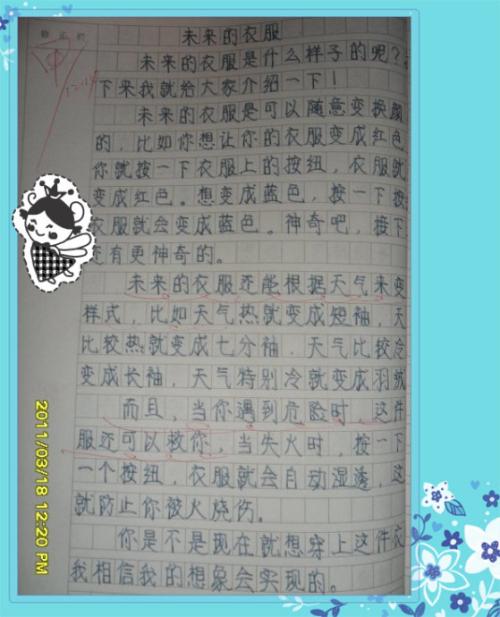 未来的衣服
未来的衣服是什么样子的呢？
下来我就给大家介绍一下！
未来的衣服是可以随意变换颜
的，比如你想让你的衣服变成红色
你就按一下衣服上的按纽，衣服就
变成红色。想变成蓝色，按一下按
衣服就会变成蓝色。神奇吧，接下
还有更神奇的。
未来的衣服还能根据天气来变
样式，比如天气热就变成短袖，天
比较热就变成七分袖，天气比较冷
变成长袖，天气特别冷就变成羽绒
而且，当你遇到危险时，这件
服还可以救你，当失火时，按一下
一个按纽，衣服就会自动湿透，这
就防止你被火烧伤。
你是不是现在就想穿上这件衣
我相信我的想象会实现的。
2011/03/18 12:20 PM